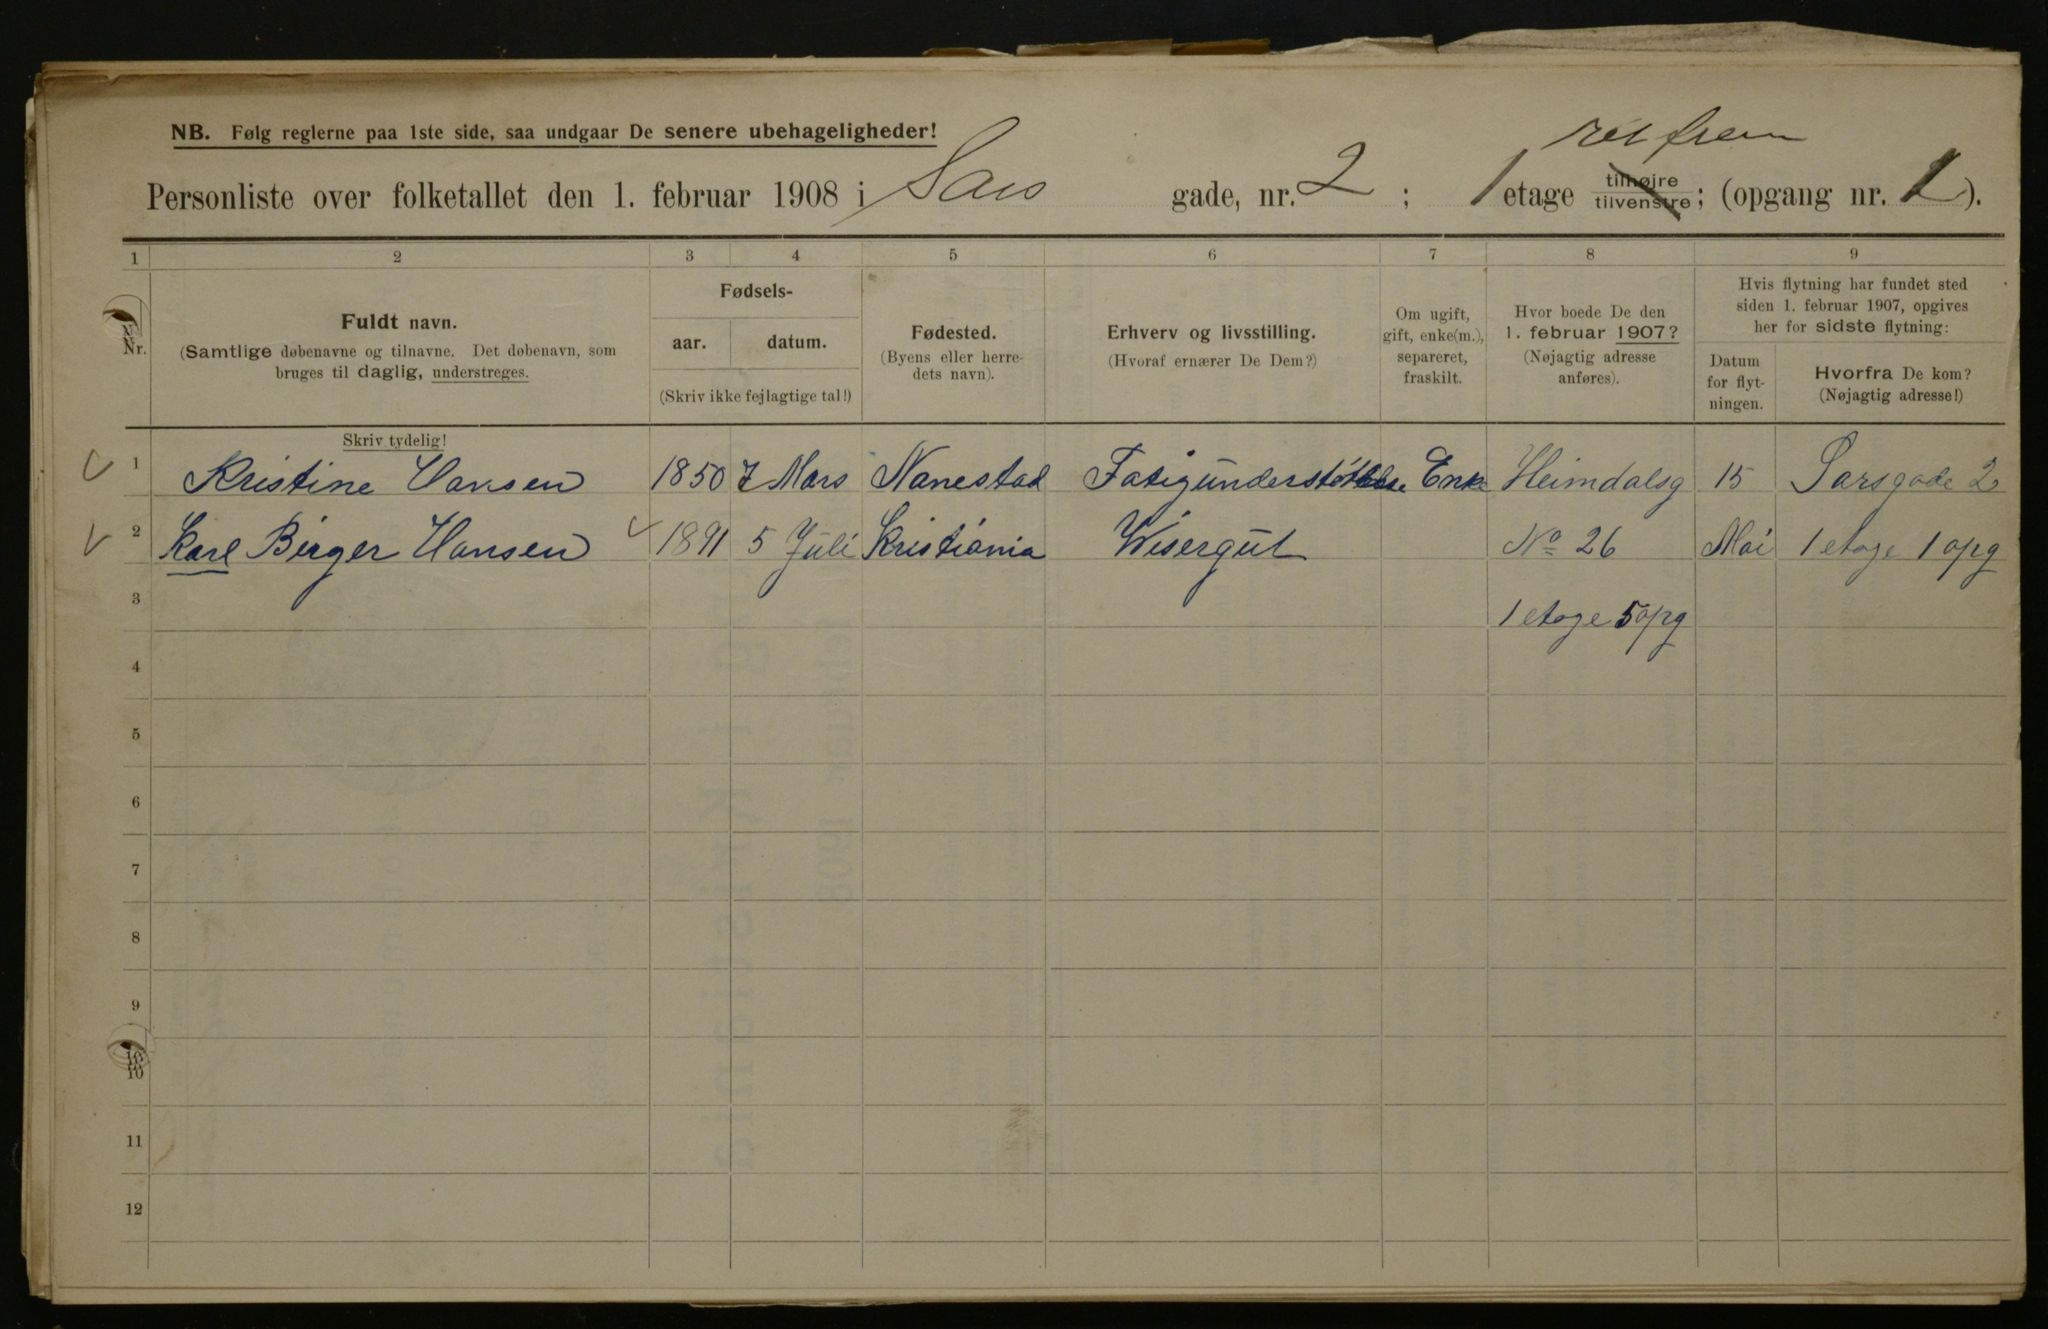 ret frem
NB. Følg reglerne paa 1ste side, saa undgaar De senere ubehageligheder!
Personliste over folketallet den 1. februar 1908 i Sars gade, nr. 2 ; 1 etage tilhøjre tilvenstre ; (opgang nr. 1).
1 2 3 4 5 6 7 8 9
Nr.
Fuldt navn.
(Samtlige døbenavne og tilnavne. Det døbenavn, som
bruges til daglig, understreges.
Skriv tydelig!
Fødsels-
aar. datum.
(Skriv ikke fejlagtige tal!)
Fødested.
(Byens eller herre-
dets navn).
Erhverv og livsstilling.
(Hvoraf ernærer De Dem?)
Om ugift,
gift, enke(m.),
separeret,
fraskilt.
Hvor boede De den
1. februar 1907?
(Nøjagtig adresse
anføres).
Hvis flytning har fundet sted
siden 1. februar 1907, opgives
her for sidste flytning:
Datum
for flyt-
ningen.
Hvorfra De kom?
(Nøjagtig adresse!)
1 Kristine Hansen 1850 7 Mars Nanestad Fatigunderstøttelse Enke Heimdalsg 15 Sarsgade 2
2 Karl Birger Hansen 1891 5 Juli Kristiania Wisergut No 26 Mai 1 etage 1 opg
3 1 etage 5 opg
4
5
6
7
8
9
10
10
11
12